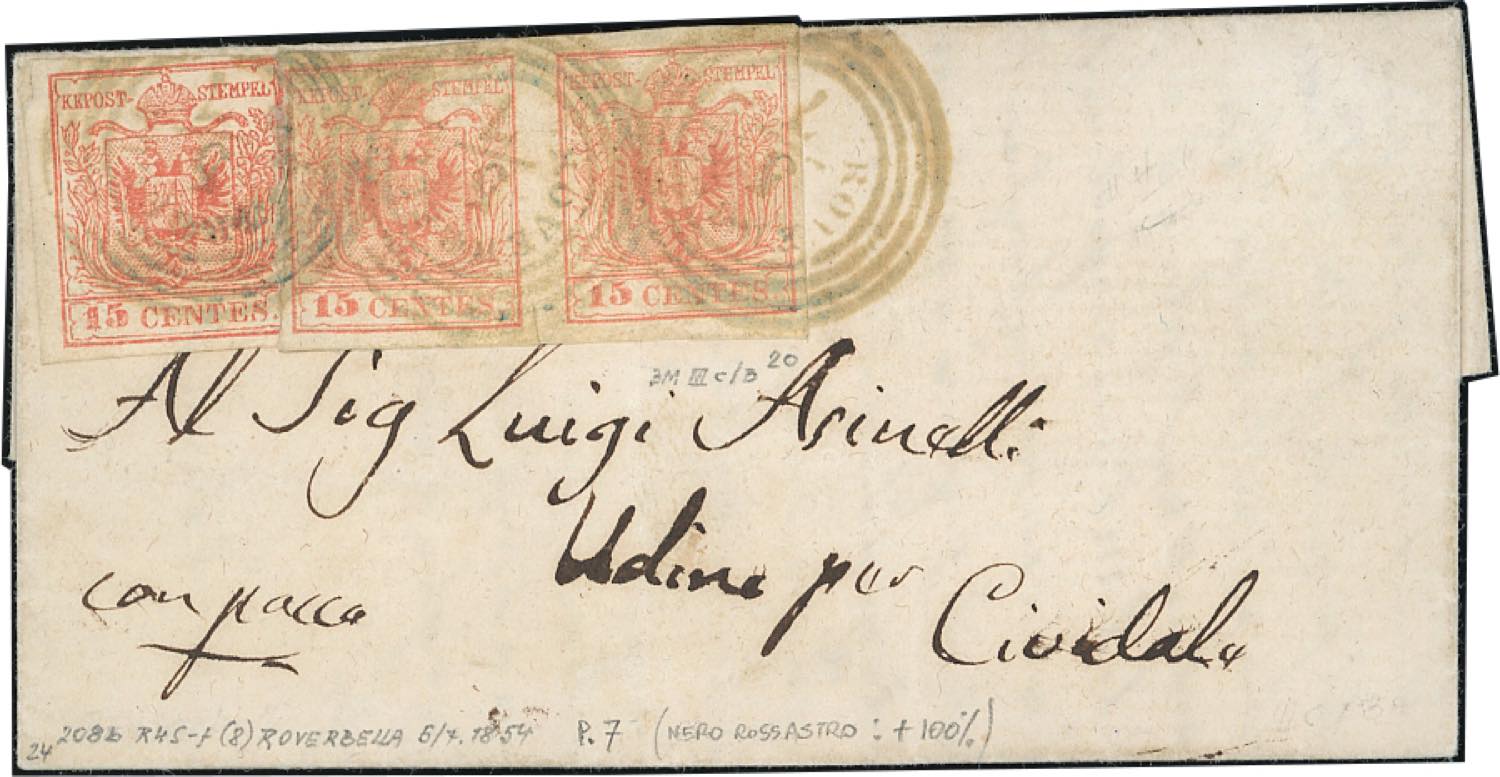 KKPOST- STEMPEL KKPOST- STEMPEL KKPOST- STEMPEL
15 CENTES. 15 CENTES. 15 CENTES.
3M III c/B 20
Al Sig Luigi Asinelli
Udine per
Cividale
con pacco
24 208b R45-f (8) ROVERBELLA 5/7. 1854 P.7 (NERO ROSSASTRO : + 100%)